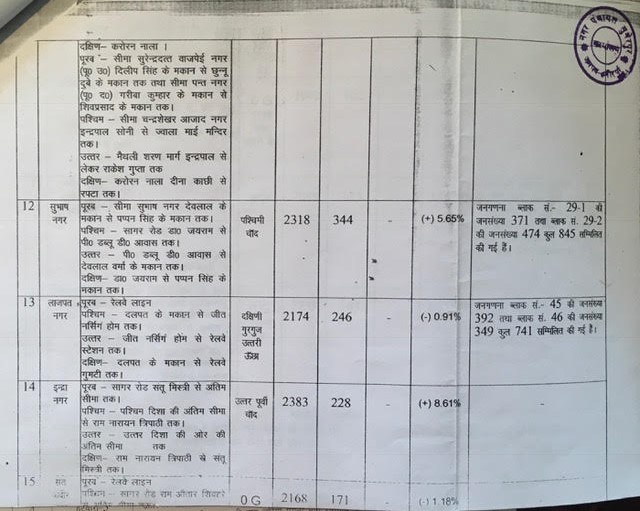 दक्षिण– करोरन नाला ।
पूरब – सीमा सुरेन्द्रदत्त वाजपेई नगर
(पू0 उ0) दिलीप सिंह के मकान से छुन्नू
दुबे के मकान तक तथा सीमा पन्त नगर
(पू0 द0) गरीबा कुम्हार के मकान से
शिवप्रसाद के मकान तक।
पश्चिम – सीमा चन्द्रशेखर आजाद नगर
इन्द्रपाल सोनी से ज्वाला माई मन्दिर
तक।
उत्तर – मैथली शरण मार्ग इन्द्रपाल से
लेकर राकेश गुप्ता तक
दक्षिण– करोरन नाला दीना काछी से
रपटा तक।
12
सुभाष
नगर
पूरब – सीमा सुभाष नगर देवलाल के
मकान से पप्पन सिंह के मकान तक।
पश्चिम – सागर रोड डा0 जयराम से
पी0 डब्लू डी0 आवास तक।
उत्तर – पी0 डब्लू डी0 आवास से
देवलाल वर्मा के मकान तक।
दक्षिण– डा0 जयराम से पप्पन सिंह के
मकान तक।
पश्चिमी
चाँद
2318
344
-
(+) 5.65%
जनगणना ब्लाक सं.– 29-1 की
जनसंख्या 371 तथा ब्लाक सं. 29-2
की जनसंख्या 474 कुल 845 सम्मिलित
की गई है।
13
लाजपत
नगर
पूरब – रेलवे लाइन
पश्चिम – दलपत के मकान से जीत
नर्सिंग होम तक।
उत्तर – जीत नर्सिंग होम से रेलवे
स्टेशन तक।
दक्षिण– दलपत के मकान से रेलवे
गुमटी तक।
दक्षिणी
गुरगुज
उत्तरी
2174
246
-
(-) 0.91%
जनगणना ब्लाक सं.– 45 की जनसंख्या
392 तथा ब्लाक सं. 46 की जनसंख्या
349 कुल 741 सम्मिलित की गई है।
14
इन्द्रा
नगर
पूरब – सागर रोड संतू मिस्त्री से अंतिम
सीमा तक।
पश्चिम – पश्चिम दिशा की अंतिम सीमा
से राम नारायन त्रिपाठी तक।
उत्तर – उत्तर दिशा की ओर की
अंतिम सीमा तक
दक्षिण– राम नारायन त्रिपाठी से संतू
मिस्त्री तक।
उत्तर पूर्वी
चाँद
2383
228
-
(+) 8.61%
-
15
संत
पूरब – रेलवे लाइन
पश्चिम – सागर रोड राम औतार
0 G
2168
171
(-) 1.18%
नगर पंचायत